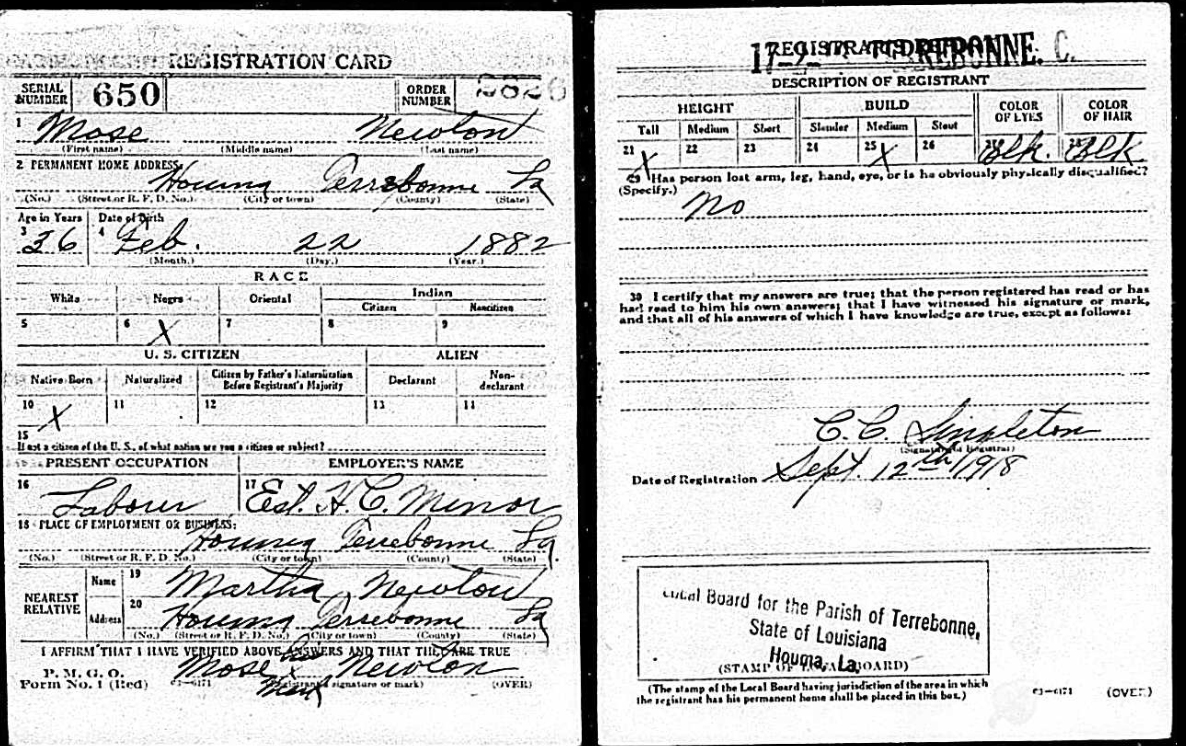 REGISTRATION CARD
SERIAL NUMBER 650 ORDER NUMBER
1 Mose Newton
(First name) (Middle name) (Last name)
2 PERMANENT HOME ADDRESS:
Houma Terrebonne La
(No.) (Street or R. F. D. No.) (City or town) (County) (State)
Age in Years Date of Birth
3 36 4 Feb. 22 1882
(Month.) (Day.) (Year.)
RACE
White Negro Oriental Indian
Citizen Noncitizen
5 6 X 7 8 9
U. S. CITIZEN ALIEN
Native Born Naturalized Citizen by Father's Naturalization Before Registrant's Majority Declarant Non-declarant
10 X 11 12 13 14
15
If not a citizen of the U. S., of what nation are you a citizen or subject?
PRESENT OCCUPATION EMPLOYER'S NAME
16 Laborer 17 Est. H. C. Minor
18 PLACE OF EMPLOYMENT OR BUSINESS:
Houma Terrebonne La
(No.) (Street or R. F. D. No.) (City or town) (County) (State)
NEAREST RELATIVE Name 19 Martha Newton
Address 20 Houma Terrebonne La
(No.) (Street or R. F. D. No.) (City or town) (County) (State)
I AFFIRM THAT I HAVE VERIFIED ABOVE ANSWERS AND THAT THEY ARE TRUE
P. M. G. O.
Form No. 1 (Red) Mose his x mark Newton
(Registrant's signature or mark) (OVER)
REGISTRAR'S REPORT
TERREBONNE. C.
DESCRIPTION OF REGISTRANT
HEIGHT BUILD COLOR OF EYES COLOR OF HAIR
Tall Medium Short Slender Medium Stout
21 X 22 23 24 25 X 26 27 Blk. 28 Blk
29 Has person lost arm, leg, hand, eye, or is he obviously physically disqualified?
(Specify.)
No
30 I certify that my answers are true; that the person registered has read or has
had read to him his own answers; that I have witnessed his signature or mark,
and that all of his answers of which I have knowledge are true, except as follows:
C. C. Singleton
(Signature of Registrar)
Date of Registration Sept. 12th 1918
Local Board for the Parish of Terrebonne,
State of Louisiana
Houma, La.
(STAMP OF LOCAL BOARD)
(The stamp of the Local Board having jurisdiction of the area in which
the registrant has his permanent home shall be placed in this box.)
03-6171 (OVER)